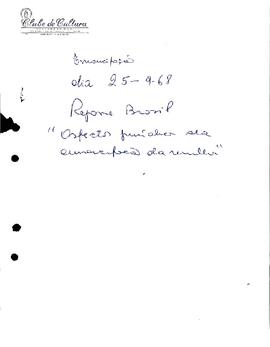 Clube de Cultura
Emancipação
dia 25-9-68
Rejane Brasil
"Aspectos jurídicos da
emancipação da mulher"